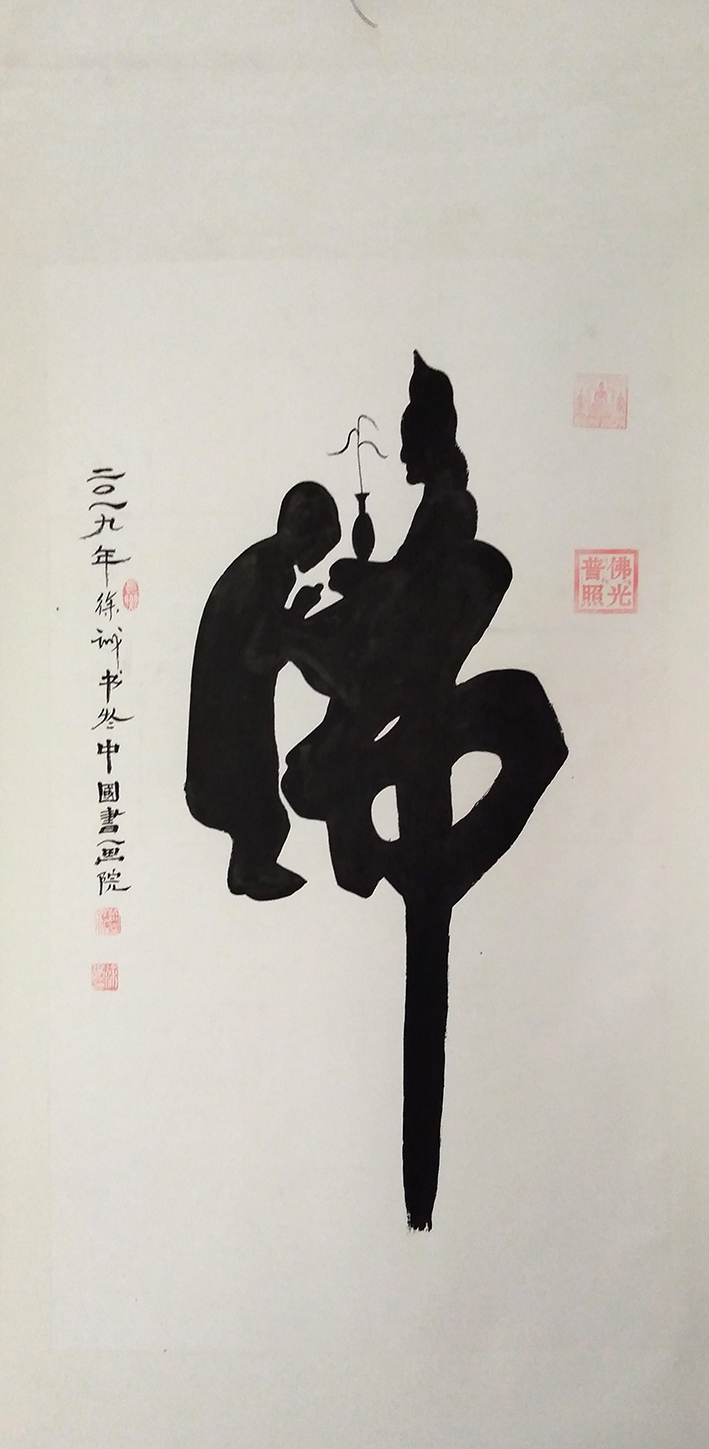 佛光普照
佛
二〇一九年徐诚书於中國書画院